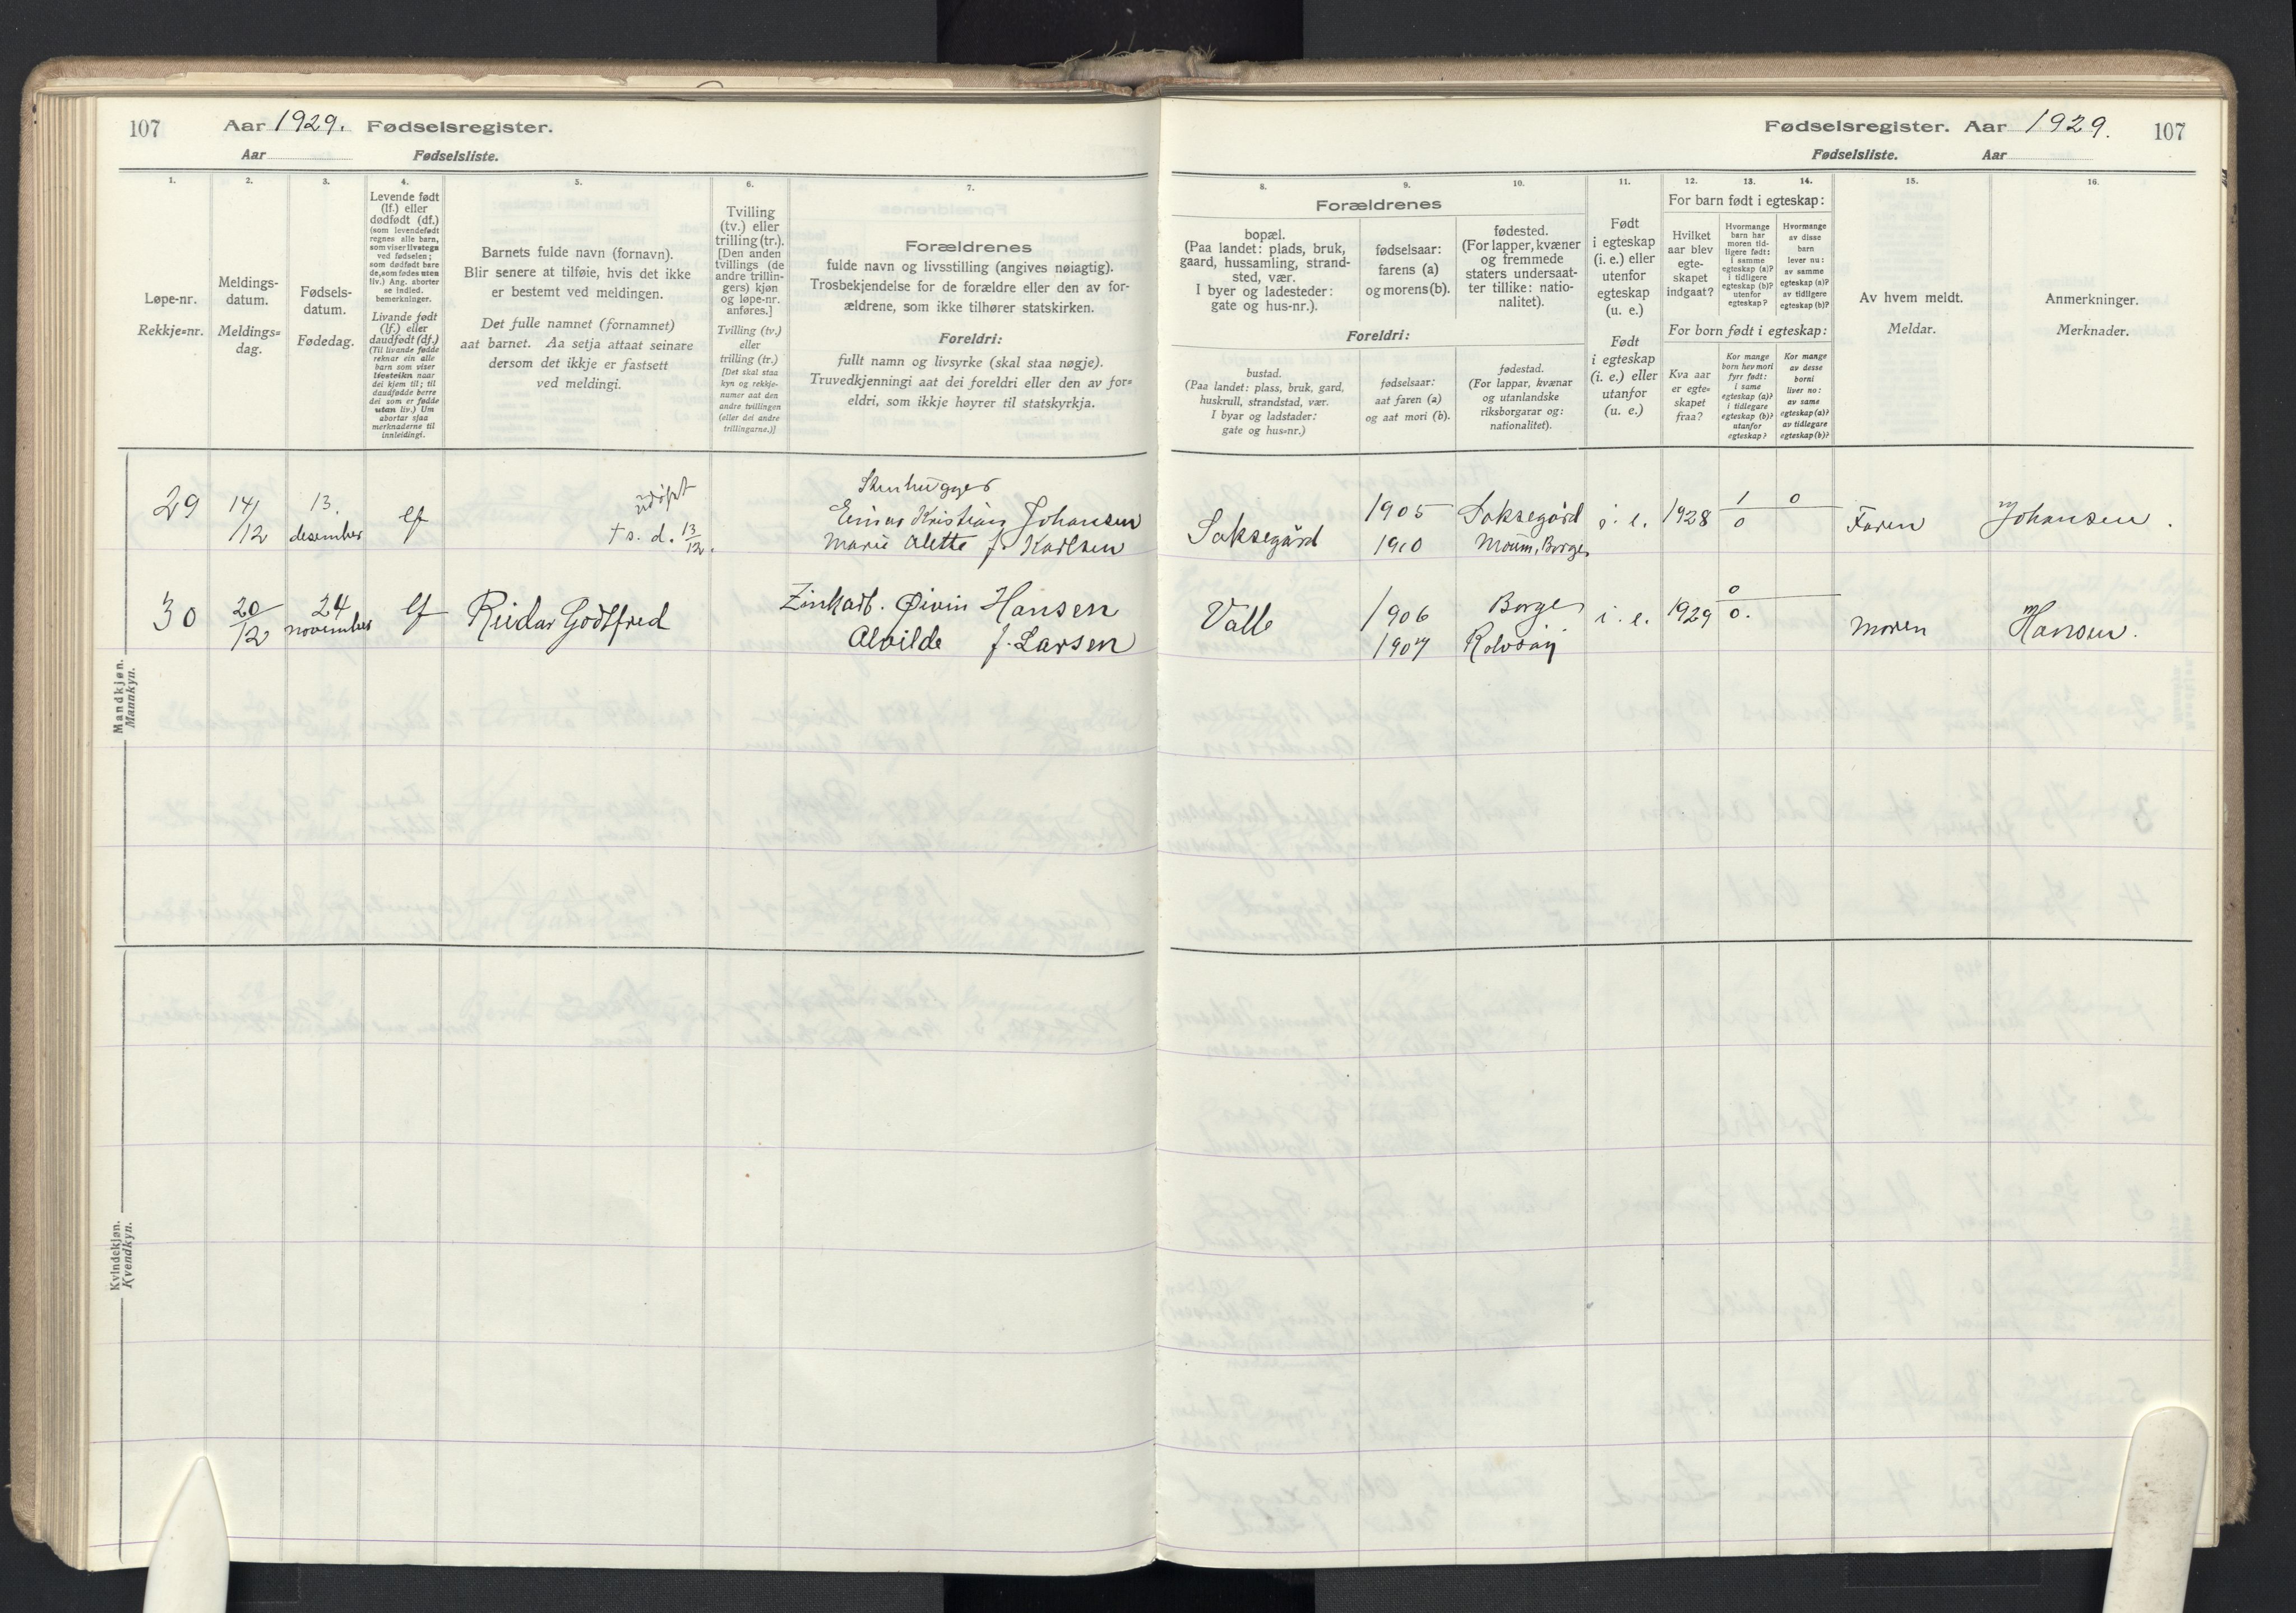 107 Aar 1929. Fødselsregister.
Aar Fødselsliste.
1. 2. 3. 4. 5. 6. 7.
Løpe-nr.
Rekkje=nr.
Meldings-
datum.
Meldings=
dag.
Fødsels-
datum.
Fødedag.
Levende født
(lf.) eller
dødfødt (df.)
(som levendefødt
regnes alle barn,
som viser livstegn
ved fødselen;
som dødfødt bare
de, som fødes uten
liv.) Ang. aborter
se indled.
bemerkninger.
Livande født
(lf.) eller
daudfødt (df.)
(Til livande fødde
reknar ein alle
barn som viser
livsteikn naar
dei kjem til; til
daudfødde berre
dei som er fødde
utan liv.) Um
abortar sjaa
merknaderne til
innleidingi.
Barnets fulde navn (fornavn).
Blir senere at tilføie, hvis det ikke
er bestemt ved meldingen.
Det fulle namnet (fornamnet)
aat barnet. Aa setja attaat seinare
dersom det ikkje er fastsett
ved meldingi.
Tvilling
(tv.) eller
trilling (tr.).
[Den anden
tvillings (de
andre trillin-
gers) kjøn
og løpe-nr.
anføres.]
Tvilling (tv.)
eller
trilling (tr.)
[Det skal staa
kyn og rekkje-
numer aat den
andre tvillingen
(eller dei andre
trillingarne.)]
Forældrenes
fulde navn og livsstilling (angives nøiagtig).
Trosbekjendelse for de forældre eller den av for-
ældrene, som ikke tilhører statskirken.
Foreldri:
fullt namn og livsyrke (skal staa nøgje).
Truvedkjenningi aat dei foreldri eller den av for=
eldri, som ikkje høyrer til statskyrkja.
Mandkjøn.
Mannkyn.
29 14/12 13. desember lf udøpt
† s. d. 13/12.
Stenhugger
Einar Kristian Johansen
Marie Alette f. Karlsen
30 20/12 24 november lf Reidar Godtfred
Zinkarb. Øivin Hansen
Alvilde f. Larsen
Kvindekjøn.
Kvendkyn.
Fødselsregister. Aar 1929. 107
Fødselsliste. Aar
8. 9. 10. 11. 12. 13. 14. 15. 16.
Forældrenes
bopæl.
(Paa landet: plads, bruk,
gaard, hussamling, strand-
sted, vær.
I byer og ladesteder:
gate og hus-nr.).
fødselsaar:
farens (a)
og morens (b).
fødested.
(For lapper, kvæner
og fremmede
staters undersaat-
ter tillike: natio-
nalitet).
Foreldri:
bustad.
(Paa landet: plass, bruk, gard,
huskrull, strandstad, vær.
I byar og ladstader:
gate og hus=nr.)
fødselsaar:
aat faren (a)
og aat mori (b).
fødestad.
(For lappar, kvænar
og utanlandske
riksborgarar og:
nationalitet).
Født
i egteskap
(i. e.) eller
utenfor
egteskap
(u. e.)
Født
i egteskap
(i. e.) eller
utanfor
(u. e.)
For barn født i egteskap:
Hvilket
aar blev
egte-
skapet
indgaat?
Hvormange
barn har
moren tid-
ligere født:
i samme
egteskap (a)?
i tidligere
egteskap (b)?
utenfor
egteskap?
Hvormange
av disse
barn
lever nu:
av samme
egteskap (a)?
av tidligere
egteskap (b)?
For born født i egteskap:
Kva aar
er egte=
skapet
fraa?
Kor mange
born hev mori
fyrr født:
i same
egteskap (a)?
i tidlegare
egteskap (b)?
utanfor
egteskap?
Kor mange
av desse
borni
liver no:
av same
egteskap (a)?
av tidlegare
egteskap (b)?
Av hvem meldt.
Meldar.
Anmerkninger.
Merknader.
Saksegård 1905 Saksegård i. e. 1928 1 0 Faren Johansen.
1910 Moum, Borge 0
Valle 1906 Borge i. e. 1929 0 Moren Hansen.
1907 Rolvsøy 0.